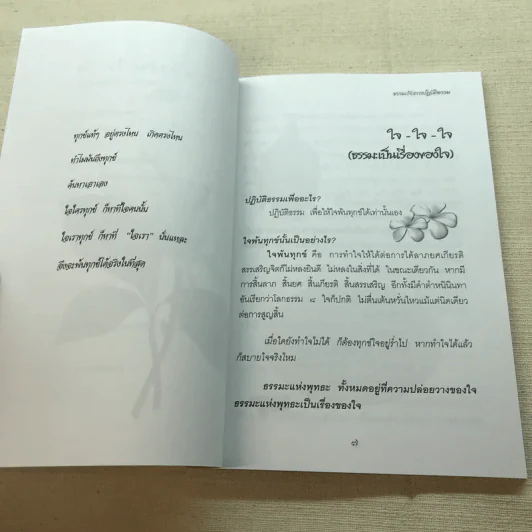 ทุกข์แท้ๆ อยู่ตรงไหน เกิดตรงไหน
ทำไมมันถึงทุกข์
ค้นหาเอาเอง
ใจใครทุกข์ ก็หาที่ใจคนนั้น
ใจเราทุกข์ ก็หาที่ "ใจเรา" นั่นแหละ
ถึงจะพ้นทุกข์ได้จริงในที่สุด
ธรรมะกับการปฏิบัติธรรม
ใจ - ใจ - ใจ
(ธรรมะเป็นเรื่องของใจ)
ปฏิบัติธรรมเพื่ออะไร?
ปฏิบัติธรรม เพื่อให้ใจพ้นทุกข์ได้เท่านั้นเอง
ใจพ้นทุกข์นั้นเป็นอย่างไร?
ใจพ้นทุกข์ คือ การทำใจให้ได้ต่อการได้ลาภยศเกียรติ
สรรเสริญจิตก็ไม่หลงยินดี ไม่หลงในสิ่งที่ได้ ในขณะเดียวกัน หากมี
การสิ้นลาภ สิ้นยศ สิ้นเกียรติ สิ้นสรรเสริญ อีกทั้งมีคำตำหนินินทา
อันเรียกว่าโลกธรรม ๘ ใจก็ปกติ ไม่ตื่นเต้นหวั่นไหวแม้แต่นิดเดียว
ต่อการสูญสิ้น
เมื่อใดยังทำใจไม่ได้ ก็ต้องทุกข์ใจอยู่ร่ำไป หากทำใจได้แล้ว
ก็สบายใจจริงไหม
ธรรมะแห่งพุทธะ ทั้งหมดอยู่ที่ความปล่อยวางของใจ
ธรรมะแห่งพุทธะเป็นเรื่องของใจ
๗